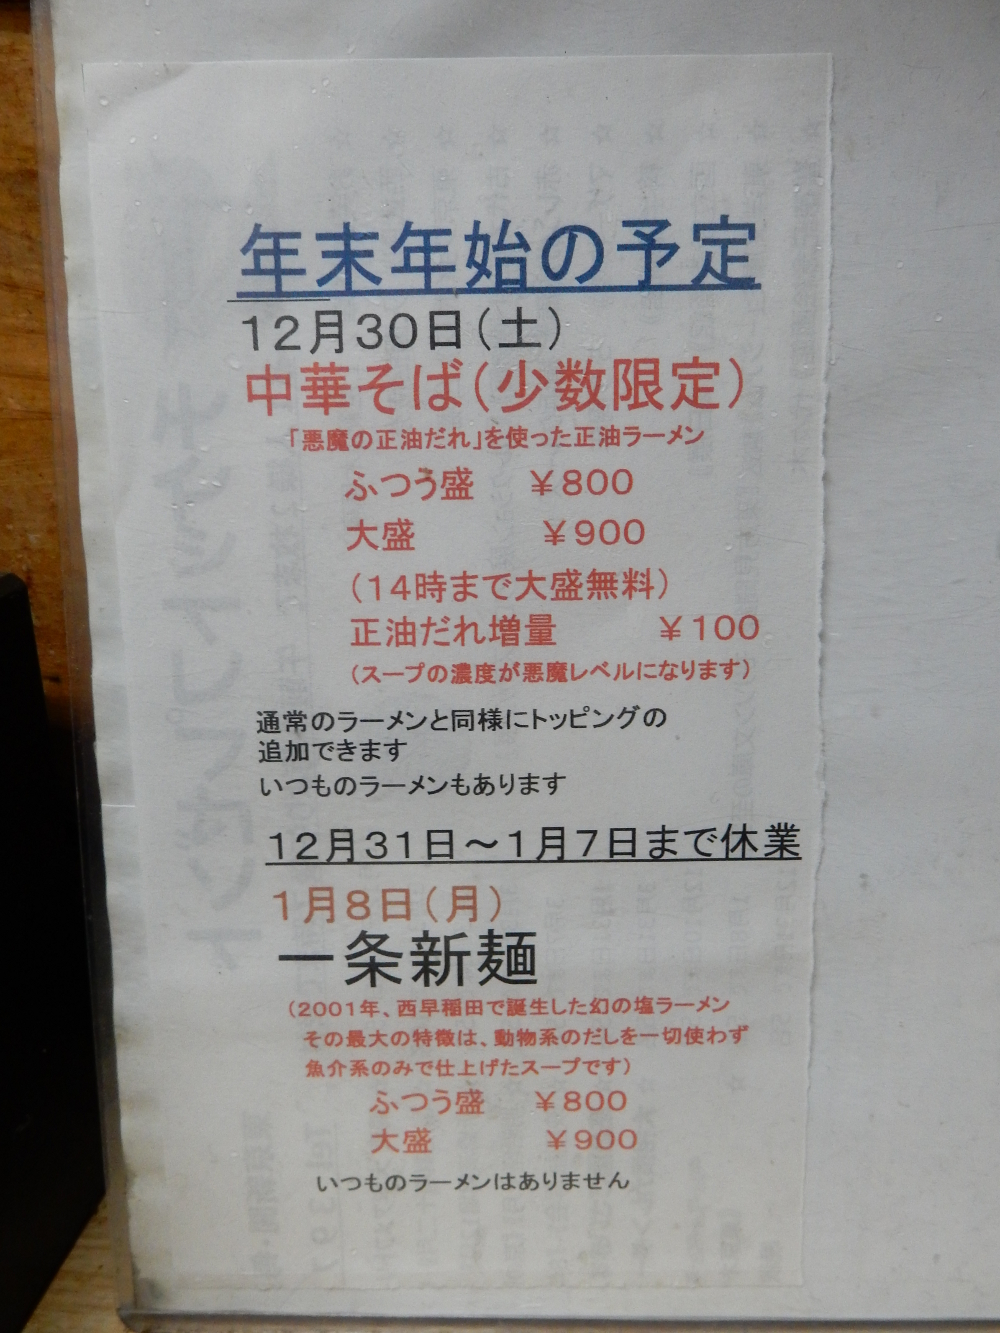 年末年始の予定
12月30日(土)
中華そば(少数限定)
「悪魔の正油だれ」を使った正油ラーメン
ふつう盛　￥800
大盛　￥900
(14時まで大盛無料)
正油だれ増量　￥100
(スープの濃度が悪魔レベルになります)
通常のラーメンと同様にトッピングの
追加できます
いつものラーメンもあります
12月31日～1月7日まで休業
1月8日(月)
一条新麺
(2001年、西早稲田で誕生した幻の塩ラーメン
その最大の特徴は、動物系のだしを一切使わず
魚介系のみで仕上げたスープです)
ふつう盛　￥800
大盛　￥900
いつものラーメンはありません